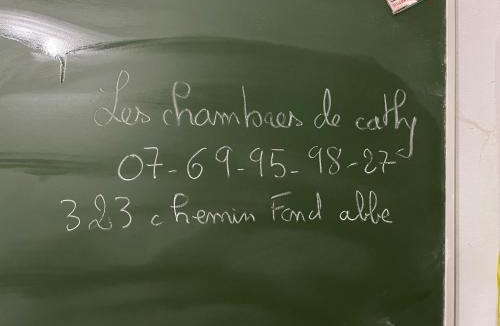 Les chambres de cathy
07-69-95-98-27
323 chemin Fond abbe